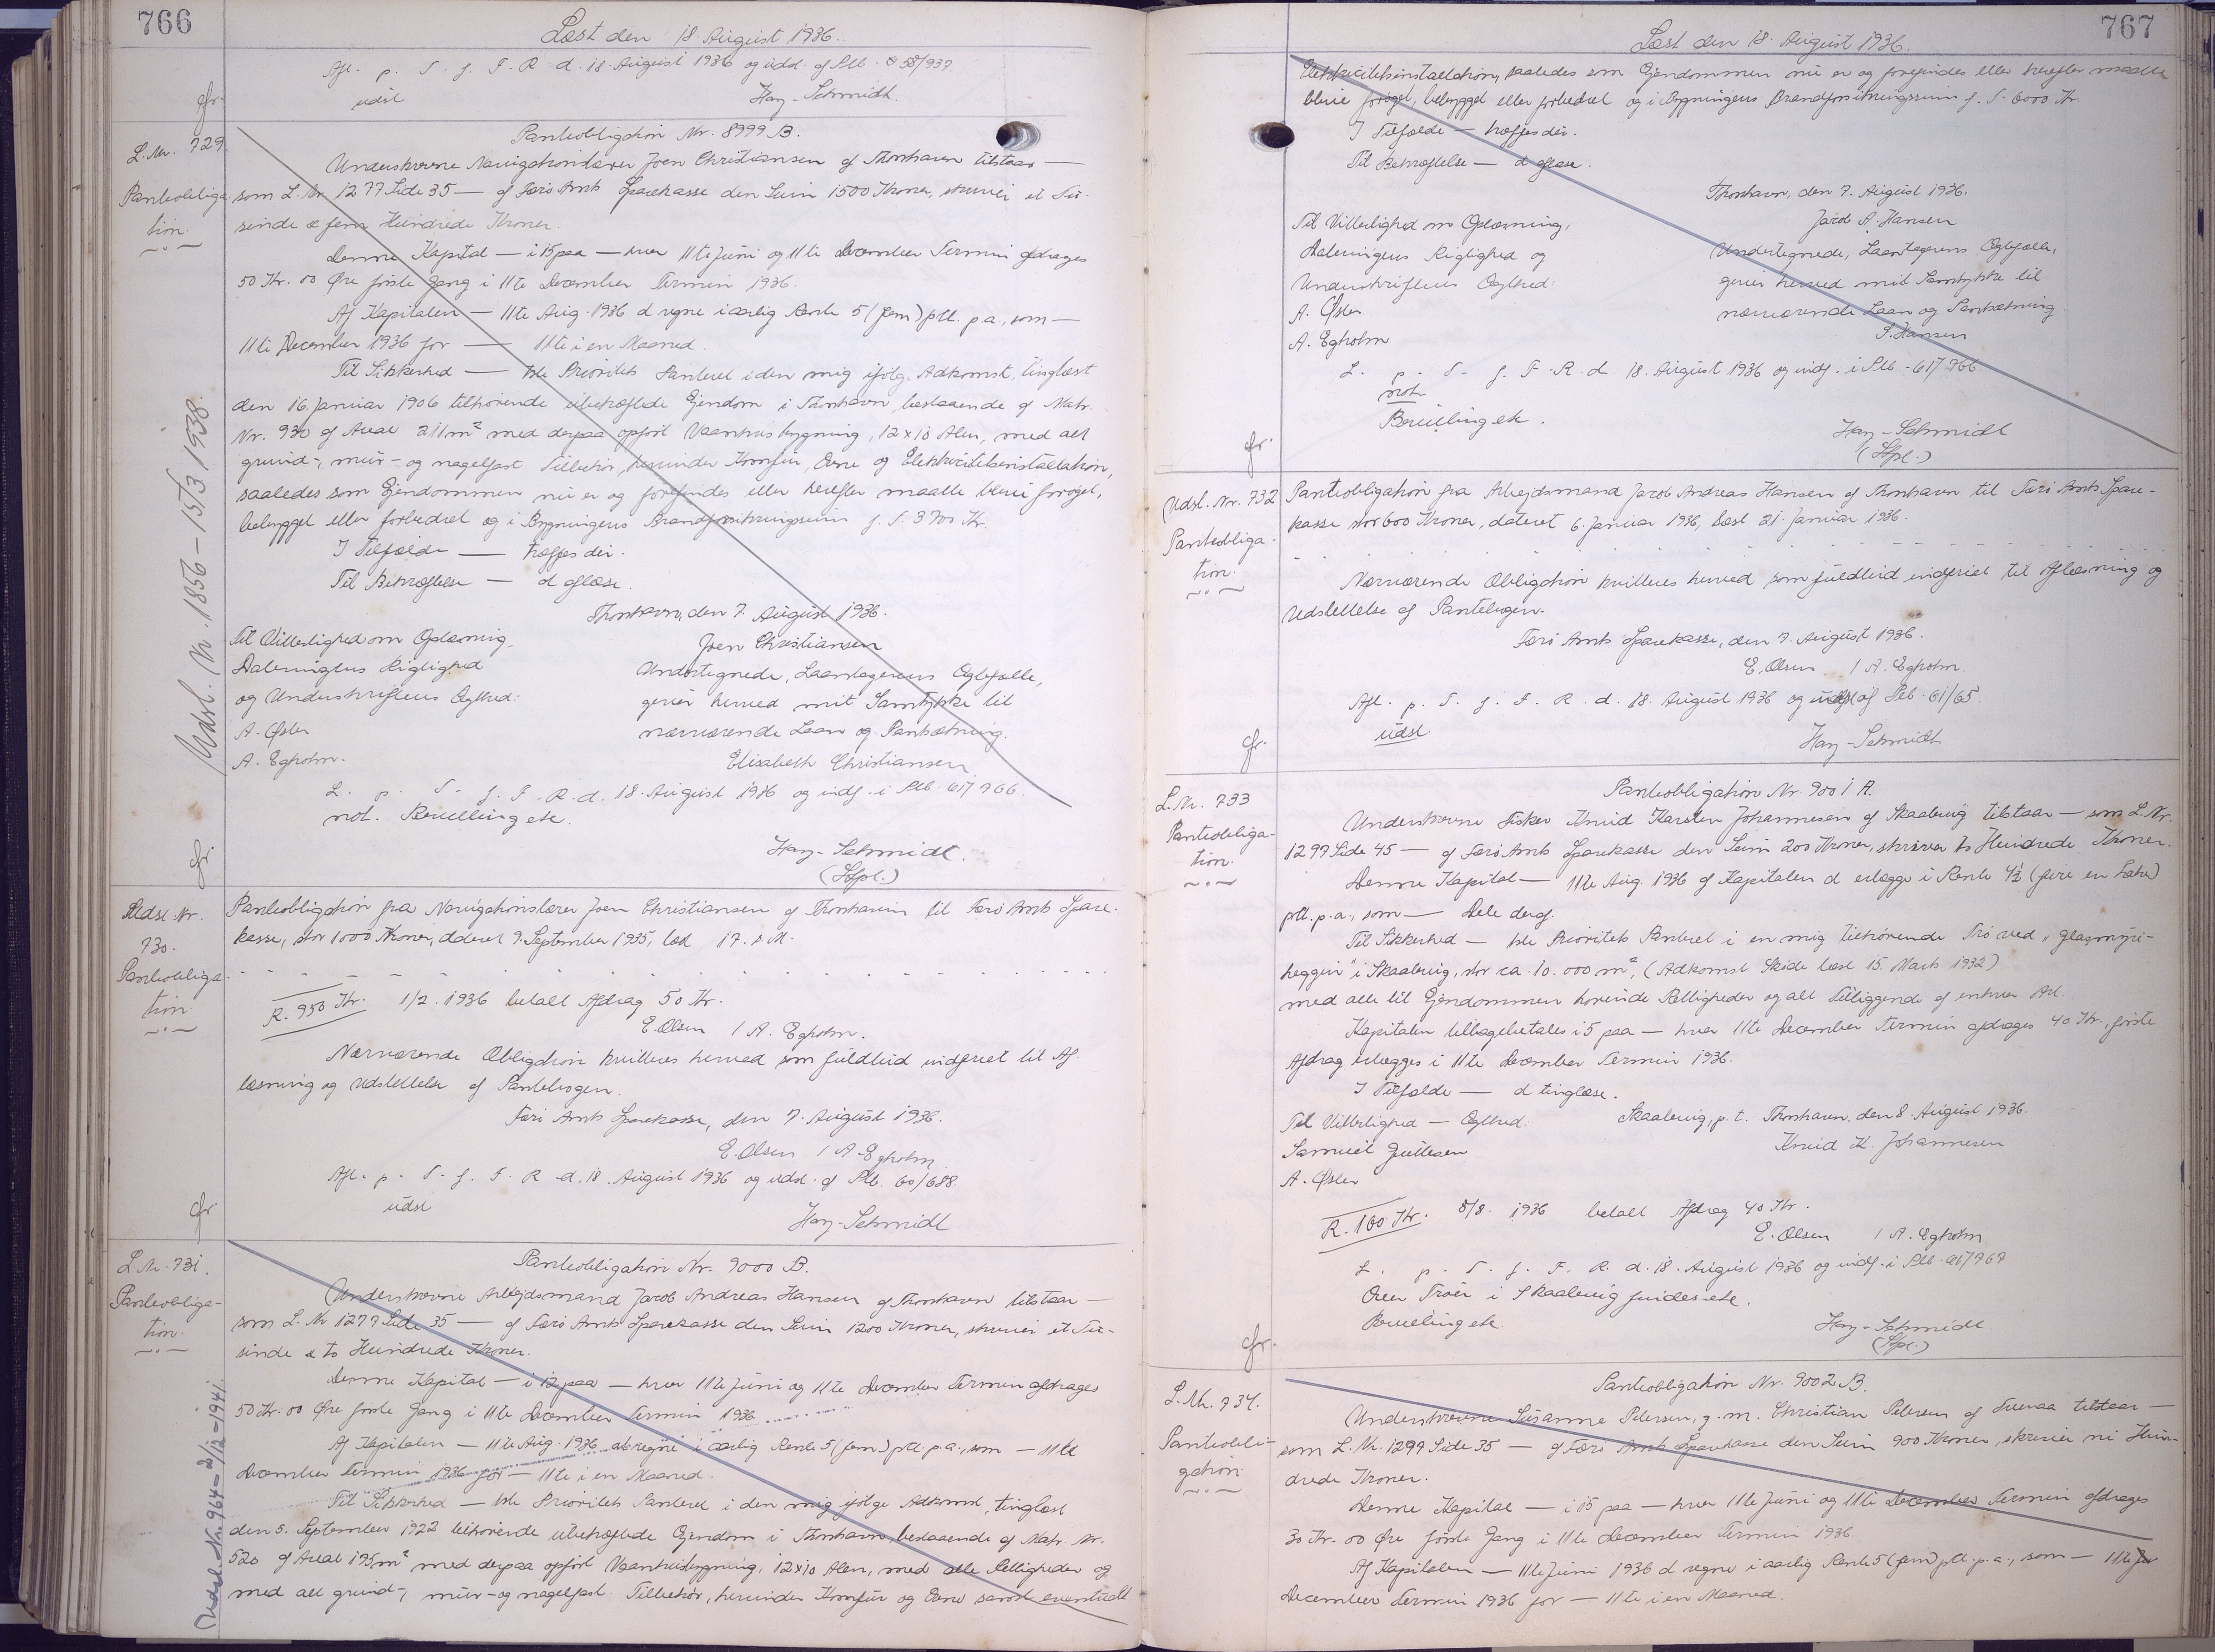 766
Læst den 18. August 1936.
Afl. p. T. f. F. R. d. 18. August 1936 og udsl. af Plb.
udsl Hay-Schmidt.
Gr.
L. Nr. 729.
Panteobliga
tion.
Udsl. Nr. 1856 - 15/3 1938.
Panteobligation Nr. 8999 B.
Underskrevne Navigationslærer Joen Christiansen af Thorshavn tilstaar —
som L. Nr. 1277 Side 35 — af Færø Amts Sparekasse den Sum 1500 Kroner, skriver et Tu-
sinde & fem Hundrede Kroner.
Denne Kapital — i 15 paa — hver 11te Juni og 11te December Termin afdrages
50 Kr. 00 Øre første Gang i 11te December Termin 1936.
Af Kapitalen — 11te Aug. 1936 at regne i aarlig Rente 5 (fem) pCt. p.a., som —
11te December 1936 for — 11te i en Maaned.
Til Sikkerhed — 1ste Prioritets Panteret i den mig ifølge Adkomst, tinglæst
den 16. Januar 1906 tilhørende ubehæftede Ejendom i Thorshavn, bestaaende af Matr.
Nr. 930 af Areal 211 m² med derpaa opført Vaanhusbygning, 12 x 10 Alen, med alt
grund-, mur- og nagelfast Tilbehør, herunder Komfur, Ovne og Elektricitetsinstallation,
saaledes som Ejendommen nu er og forefindes eller herefter maatte blive forøget,
bebygget eller forbedret og i Bygningens Brandforsikringssum f. T. 3700 Kr.
I Tilfælde — træffes der.
Til Bekræftelse — at aflæse.
Thorshavn, den 7. August 1936.
Til Vitterlighed om Oplæsning, Joen Christiansen
Dateringens Rigtighed Undertegnede, Laantagerens Ægtefælle,
og Underskriftens Ægthed: giver herved mit Samtykke til
A. Øster nærværende Laan og Pantsætning.
A. Egholm. Elisabeth Christiansen
L. p. T. f. F. R. d. 18. August 1936 og indf. i Plb. 61/766.
not. Bevilling etc.
Gr. Hay-Schmidt.
(Stpl.)
Udsl. Nr.
730.
Panteobliga
tion.
Panteobligation fra Navigationslærer Joen Christiansen af Thorshavn til Færø Amts Spare-
kasse, stor 1000 Kroner, dateret 9. September 1935, læst 17. s. M.
R. 950 Kr. 1/2. 1936 betalt Afdrag 50 Kr.
E. Olsen / A. Egholm.
Nærværende Obligation kvitteres herved som fuldtud indfriet til Af-
læsning og Udslettelse af Pantebogen.
Færø Amts Sparekasse, den 7. August 1936.
E. Olsen / A. Egholm
Afl. p. T. f. F. R. d. 18. August 1936 og udsl. af Plb. 60/688.
udsl
Gr. Hay-Schmidt
L. Nr. 731.
Panteobliga-
tion.
Udsl. Nr. 964 - 2/12 - 1941.
Panteobligation Nr. 9000 B.
Underskrevne Arbejdsmand Jacob Andreas Hansen af Thorshavn tilstaar —
som L. Nr 1277 Side 35 — af Færø Amts Sparekasse den Sum 1200 Kroner, skriver et Tu-
sinde & to Hundrede Kroner.
Denne Kapital — i 12 paa — hver 11te Juni og 11te December Termin afdrages
50 Kr. 00 Øre første Gang i 11te December Termin 1936.
Af Kapitalen — 11te Aug. 1936 at regne i aarlig Rente 5 (fem) pCt. p.a., som — 11te
December Termin 1936 for — 11te i en Maaned.
Til Sikkerhed — 1ste Prioritets Panteret i den mig ifølge Adkomst, tinglæst
den 5. September 1922 tilhørende ubehæftede Ejendom i Thorshavn, bestaaende af Matr. Nr.
520 af Areal 195 m² med derpaa opført Vaanhusbygning, 12 x 10 Alen, med alle Rettigheder og
med alt grund-, mur- og nagelfast Tilbehør, herunder Komfur og Ovne samt eventuelt
767
Læst den 18. August 1936.
Elektricitetsinstallation, saaledes som Ejendommen nu er og forefindes eller herefter maatte
blive forøget, bebygget eller forbedret og i Bygningens Brandforsikringssum f. T. 6000 Kr.
I Tilfælde — træffes der.
Til Bekræftelse — at aflæse.
Thorshavn, den 7. August 1936.
Til Vitterlighed om Oplæsning, Jacob A. Hansen
Dateringens Rigtighed og Undertegnede, Laantagerens Ægtefælle,
Underskriftens Ægthed: giver herved mit Samtykke til
A. Øster nærværende Laan og Pantsætning
A. Egholm S. Hansen
L. p. T. f. F. R. d. 18. August 1936 og indf. i Plb. 61/766
not
Bevilling etc.
Gr. Hay-Schmidt
(Stpl.)
Udsl. Nr. 732
Panteobliga-
tion.
Panteobligation fra Arbejdsmand Jacob Andreas Hansen af Thorshavn til Færø Amts Spare-
kasse stor 600 Kroner, dateret 6. Januar 1936, læst 21. Januar 1936.
Nærværende Obligation kvitteres herved som fuldtud indfriet til Aflæsning og
Udslettelse af Pantebogen.
Færø Amts Sparekasse, den 7. August 1936.
E. Olsen / A. Egholm.
Afl. p. T. f. F. R. d. 18. August 1936 og udsl af Plb. 61/65.
udsl
Gr. Hay-Schmidt
L. Nr. 733
Panteobliga-
tion.
Panteobligation Nr. 9001 A.
Underskrevne Fisker Knud Karsten Johannesen af Skaalevig tilstaar — som L. Nr.
1277 Side 45 — af Færø Amts Sparekasse den Sum 200 Kroner, skriver to Hundrede Kroner.
Denne Kapital — 11te Aug. 1936 af Kapitalen at erlægge i Rente 4½ (fire en halv)
pCt. p.a., som — Dele deraf.
Til Sikkerhed — 1ste Prioritets Panteret i en mig tilhørende Trø ved
heggin" i Skaalevig, stor ca. 10.000 m², (Adkomst Skøde læst 15. Marts 1932)
med alle til Ejendommen hørende Rettigheder og alt Tilliggende af enhver Art.
Kapitalen tilbagebetales i 5 paa — hver 11te December Termin afdrages 40 Kr., første
Afdrag erlægges i 11te December Termin 1936.
I Tilfælde — at tinglæse.
Til Vitterlighed — Ægthed. Skaalevig, p. t. Thorshavn, den 8. August 1936.
Samuel Knud K. Johannesen
A. Øster
R. 160 Kr. 8/8. 1936 betalt Afdrag 40 Kr.
E. Olsen / A. Egholm
L. p. T. f. F. R. d. 18. August 1936 og indf. i Plb. 61/767
Over Trøer i Skaalevig findes etc.
Bevilling etc.
Gr. Hay-Schmidt
(Stpl.)
L. Nr. 734.
Panteobli-
gation.
Panteobligation Nr. 9002 B.
Underskrevne Susanne Petersen, g. m. Christian Petersen af Tveraa tilstaar —
som L. Nr. 1277 Side 35 — af Færø Amts Sparekasse den Sum 900 Kroner, skriver ni Hun-
drede Kroner.
Denne Kapital — i 15 paa — hver 11te Juni og 11te December Termin afdrages
30 Kr. 00 Øre første Gang i 11te December Termin 1936.
Af Kapitalen — 11te Juni 1936 at regne i aarlig Rente 5 (fem) pCt. p.a., som — 11te
December Termin 1936 for — 11te i en Maaned.